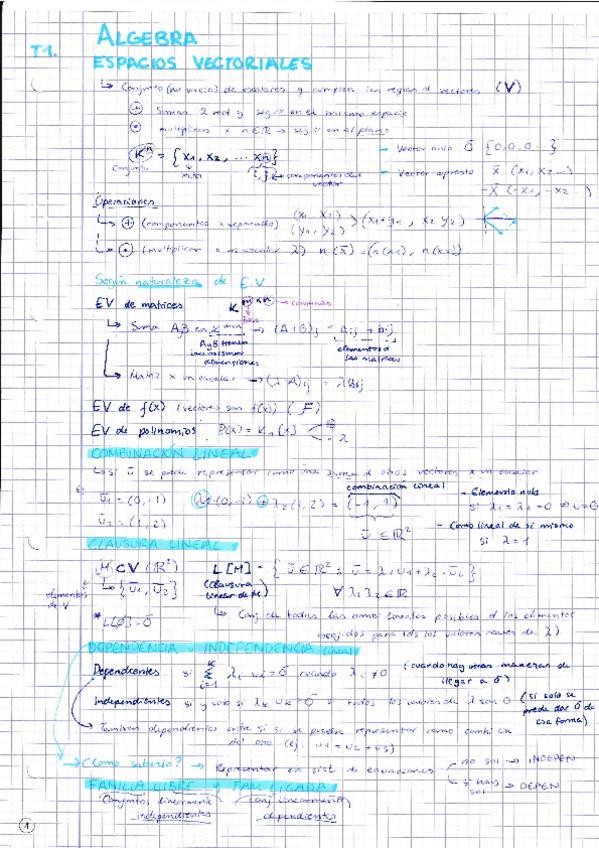 T1.
ALGEBRA
ESPACIOS VECTORIALES
↳ Conjunto (no vacío) de escalares y cumplen las reglas d vectores (V)
⊕ Suman 2 vect y seguir en el mismo espacio
multiplicar x n ∈ ℝ → seguir en el plano
Kⁿ = {x₁, x₂, ... xₙ}
conjunto
componentes del vector
- Vector nulo 0̄ {0,0,0...}
- Vector opuesto x̄ (x₁, x₂...)
-x̄ (-x₁, -x₂...)
Operaciones
↳ ⊕ (componentes x separado) (x₁, x₂) (y₁, y₂) > (x₁+y₁, x₂ y₂)
↳ ⊙ (multiplicar x un escalar λ) n(x̄) = (n(x₁), n(x₂))
Según naturaleza de E.V
EV de matrices K m×n → columnas
↳ Suma A,B en K m×n → (A+B)ij = Aij + Bij
A y B tienen las mismas dimensiones
elementos d las matrices
↳ Matriz x un escalar → (λ·A)ij = λ
EV de f(x) (vectores son f(x)) (F)
EV de polinomios P(x) = Kn(x)
COMBINACIÓN LINEAL
↳ si ū se puede representar como una suma d otros vectores x un escalar
combinación lineal
ū₁ = (0,-1) λ₁(0,-1) ⊕ λ₂(1,2) = (-1,1)
ū₂ = (1,2)
ū ∈ ℝ²
- Elemento nulo
si λ₁ = λ₂ = 0 ⇒ u = 0
- Como lineal de si mismo
si λ = 1
CLAUSURA LINEAL
M ⊂ V (ℝ²) L[M] = {ū ∈ ℝ² : ū = λ₁ū₁ + λ₂·ū₂}
elementos de V
↳ {ū₁, ū₂} (clausura lineal de M) ∀ λ₁λ₂ ∈ ℝ
↳ Conj de todas las comb lineales posibles d los elementos
para tds los valores reales de λ)
*L[∅] = 0̄
DEPENDENCIA e INDEPENDENCIA lineal
Dependientes si Σ λᵢ·uᵢ = 0̄ cuando λᵢ ≠ 0 (cuando hay otras maneras de llegar a 0̄)
Independientes si y solo si λₖ uₖ = 0̄ = todos los valores de λ son 0 (si solo se puede dar 0̄ de esa forma)
↳ Tambien dependientes entre si si se pueden representar como comb
del otro (ej. u₁ = u₂ + u₃)
→ ¿Cómo saberlo? → Representar en sist de ecuaciones
no sol → INDEPEN
si hay sol → DEPEN
FAMILIA LIBRE Y FAM LIGADA
Conjuntos linealmente independientes
conj linealmente dependientes
1